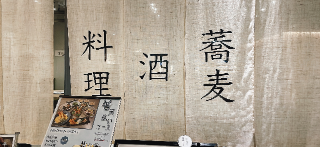 蕎麦
酒
料理